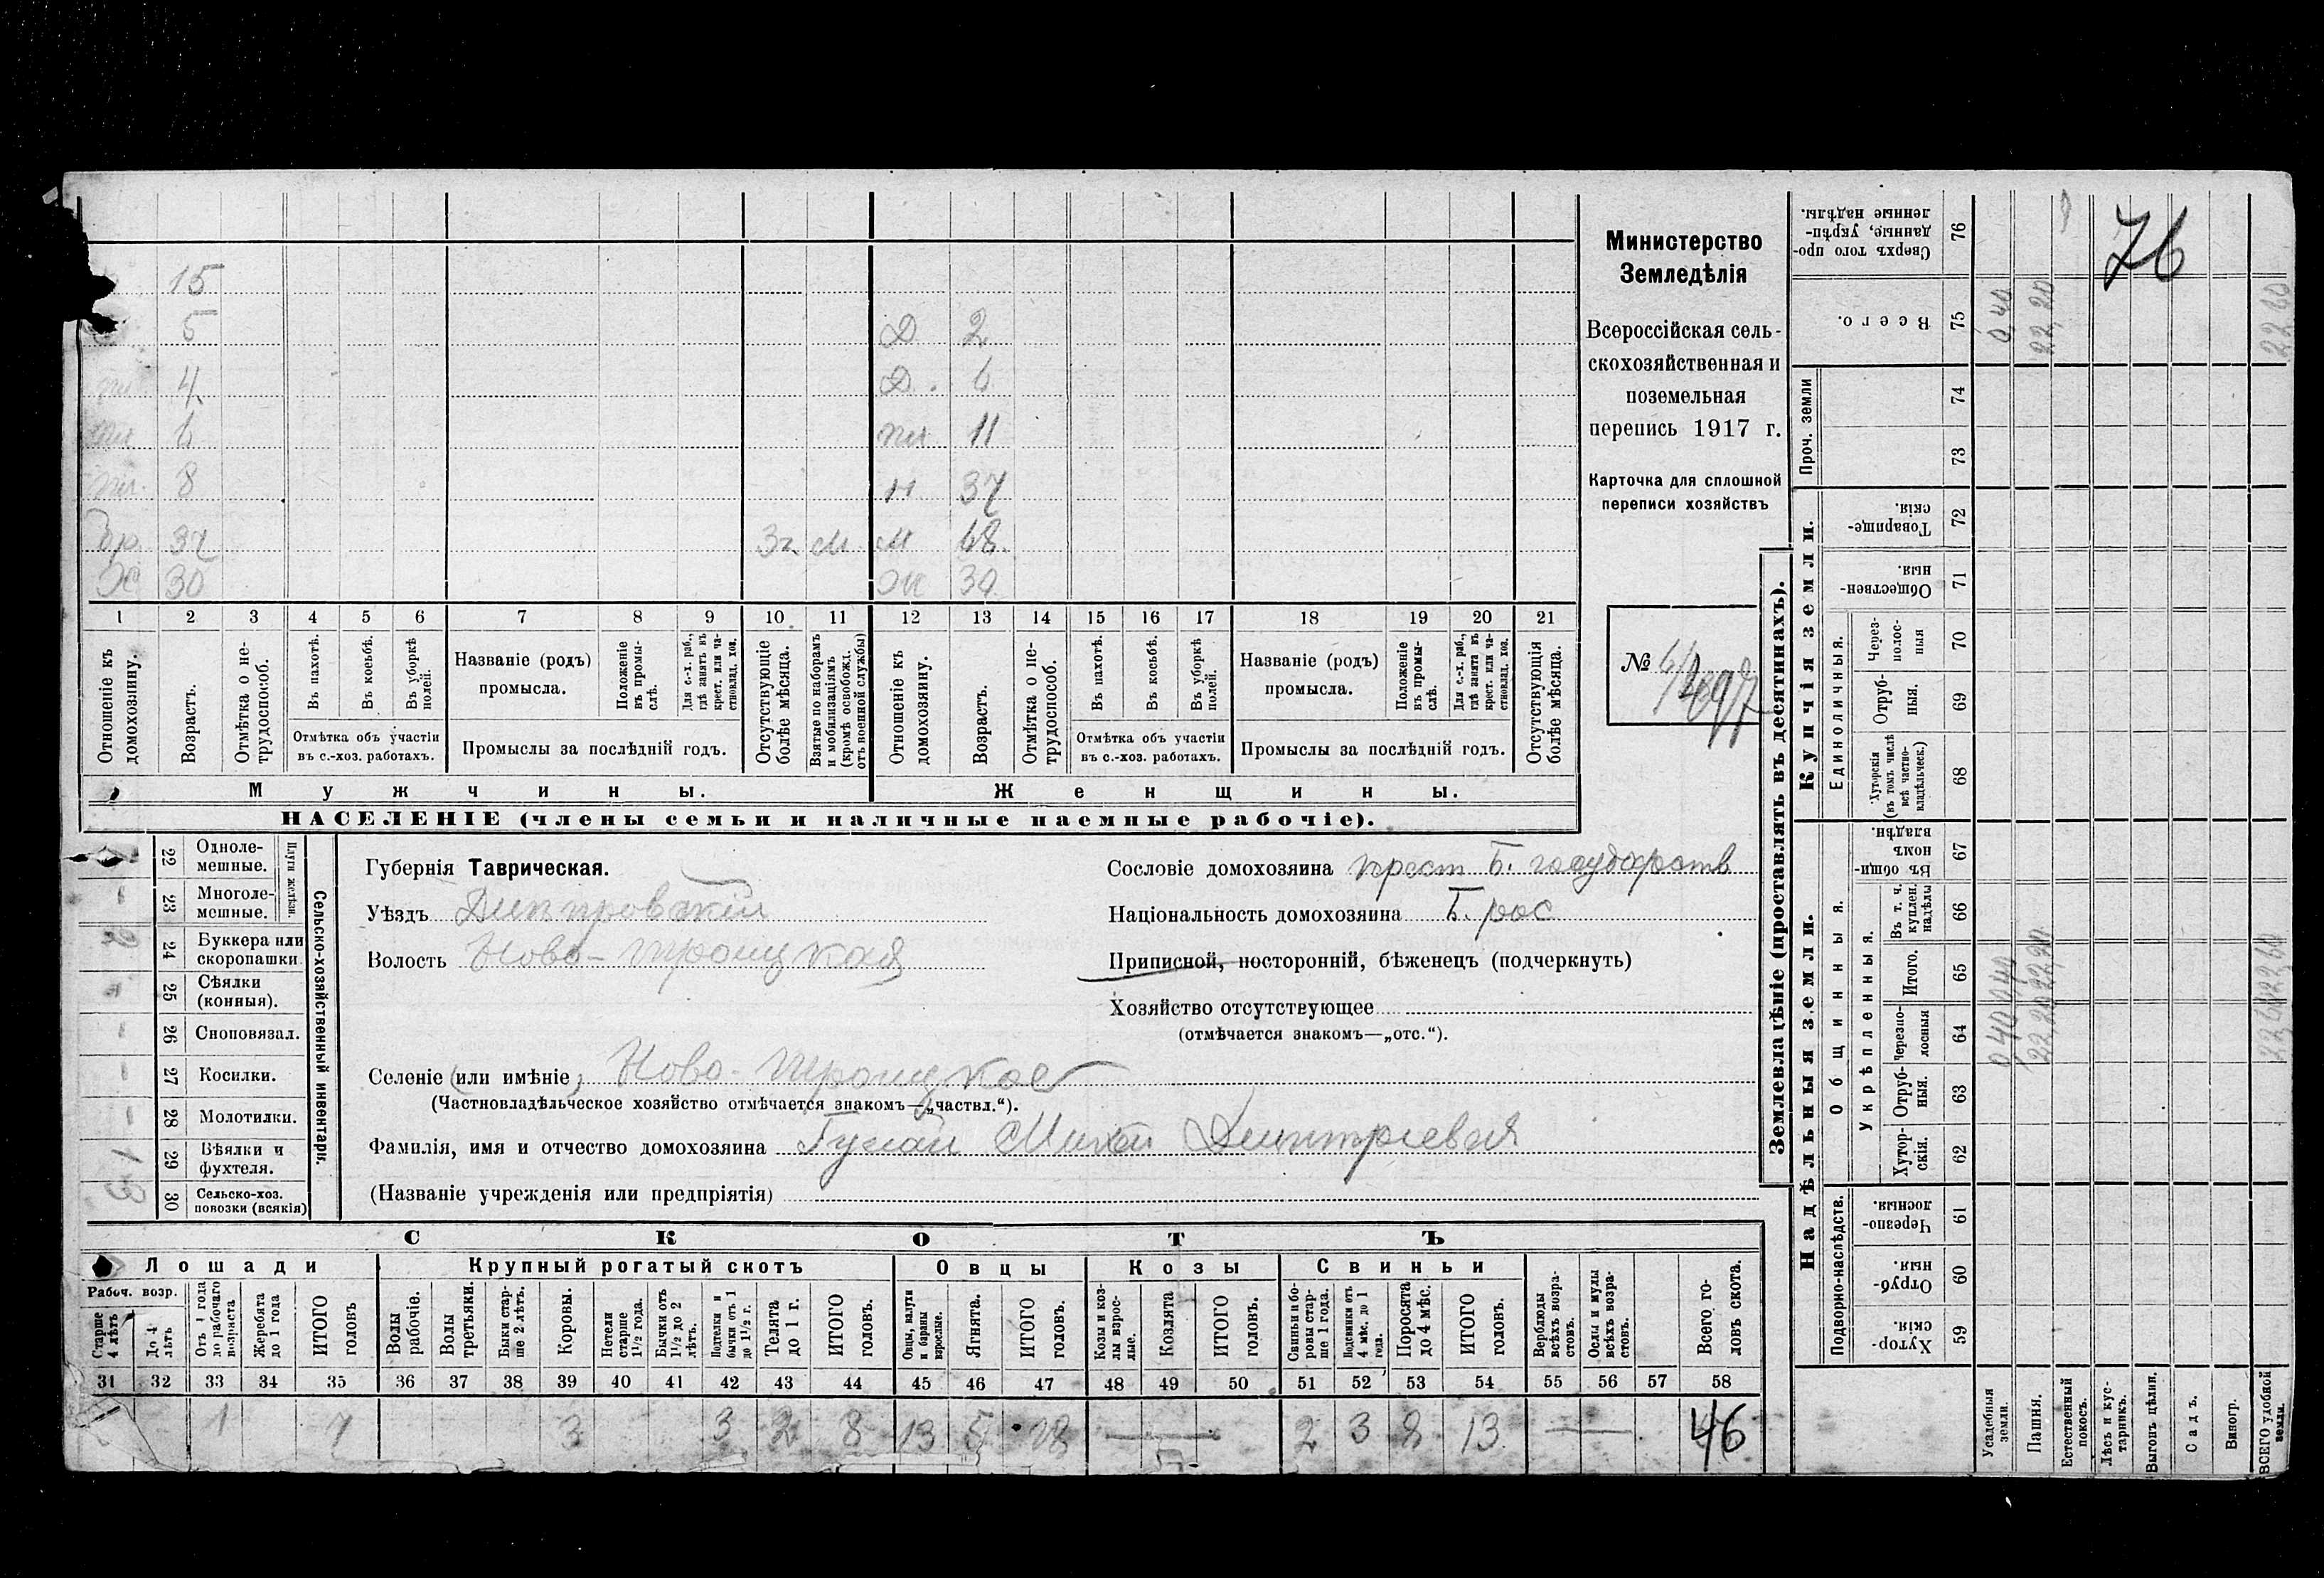 15
5
Д 2
пл. 4
Д. 6
пл 6
пл 11
пл. 8
Н 37
бр. 32 3 г. М. М 68.
Х 30 Ж 30
1 2 3 4 5 6 7 8 9 10 11 12 13 14 15 16 17 18 19 20 21
Отношеніе къ домохозяину.
Возрастъ.
Отмѣтка о нетрудоспособ.
Въ пахотѣ.
Въ косьбѣ.
Въ уборкѣ полей.
Отмѣтка объ участіи въ с.-хоз. работахъ.
Названіе (родъ) промысла.
Положеніе въ промыслѣ.
Для с.-х. раб., гдѣ занятъ въ крест. или частновлад. хоз.
Промыслы за послѣдній годъ.
Отсутствующіе болѣе мѣсяца.
Взятые по наборамъ и мобилизаціямъ (кромѣ освобожд. отъ военной службы)
Отношеніе къ домохозяину.
Возрастъ.
Отмѣтка о нетрудоспособ.
Въ пахотѣ.
Въ косьбѣ.
Въ уборкѣ полей.
Отмѣтка объ участіи въ с.-хоз. работахъ.
Названіе (родъ) промысла.
Положеніе въ промыслѣ.
Для с.-х. раб., гдѣ занята въ крест. или частновлад. хоз.
Промыслы за послѣдній годъ.
Отсутствующія болѣе мѣсяца.
Мужчины. Женщины.
НАСЕЛЕНІЕ (члены семьи и наличные наемные рабочіе).
Министерство
Земледѣлія
Всероссійская сель-
скохозяйственная и
поземельная
перепись 1917 г.
Карточка для сплошной
переписи хозяйствъ
№
22 Однолемешные.
23 Многолемешные.
Плуги желѣзн.
24 Буккера или скоропашки
25 Сѣялки (конныя).
26 Сноповязал.
27 Косилки.
28 Молотилки.
29 Вѣялки и фухтеля.
30 Сельско-хоз. повозки (всякія)
Сельско-хозяйственный инвентарь.
Губернія Таврическая.
Уѣздъ Днипровскій
Волость Ново-Троицкая
Сословіе домохозяина крест б. государств
Національность домохозяина Б. рос
Приписной, посторонній, бѣженецъ (подчеркнуть)
Хозяйство отсутствующее
(отмѣчается знакомъ—„отс.“).
Селеніе (или имѣніе) Ново-Троицкое
(Частновладѣльческое хозяйство отмѣчается знакомъ—„частвл.“).
Фамилія, имя и отчество домохозяина Гулай Дмитріевъ
(Названіе учрежденія или предпріятія)
СКОТЪ
Лошади Крупный рогатый скотъ Овцы Козы Свиньи
Рабоч. возр.
Старше 4 лѣтъ
До 4 лѣтъ
Отъ 1 года до рабочаго возраста
Жеребята до 1 года
ИТОГО головъ
Волы рабочіе.
Волы третьяки.
Быки старше 2 лѣтъ.
Коровы.
Нетели старше 1½ года.
Бычки отъ 1½ до 2 лѣтъ.
Подтелки и бычки отъ 1 до 1½ г.
Телята до 1 г.
ИТОГО головъ.
Овцы, валухи и бараны взрослые.
Ягнята.
ИТОГО головъ.
Козы и козлы взрослые.
Козлята
ИТОГО головъ.
Свиньи и боровы старше 1 года.
Подсвинки отъ 4 мѣс. до 1 года.
Поросята до 4 мѣс.
ИТОГО головъ.
Верблюды всѣхъ возрастовъ.
Ослы и мулы всѣхъ возрастовъ.
Всего головъ скота.
31 32 33 34 35 36 37 38 39 40 41 42 43 44 45 46 47 48 49 50 51 52 53 54 55 56 57 58
1 7 3 3 2 8 13 5 18 2 3 8 13 46
Землевладѣніе (проставлять въ десятинахъ).
Надѣльныя земли. Купчія земли. Проч. земли
Подворно-наслѣдств.
Общинныя.
Укрѣпленныя.
Единоличныя.
59 Хуторскія.
60 Отрубныя.
61 Черезполосныя.
62 Хуторскія.
63 Отрубныя.
64 Черезполосныя
65 Итого.
66 Въ т. ч. куплен. надѣлы
67 Въ общинномъ владѣн.
68 Хуторскія (въ томъ числѣ всѣ частновладѣльческ.)
69 Отрубныя.
70 Черезполосныя
71 Общественныя.
72 Товарищескія.
73
74
75 Всего.
76 Сверхъ того проданные, укрѣпленные надѣлы.
Усадебныя земли. 0,40 0,40 0,40
Пашня. 22,20 22,20 22,20
Естественный покосъ.
Лѣсъ и кустарникъ.
Выгонъ цѣлин.
Садъ.
Виногр.
ВСЕГО удобной земли. 22,60 22,60 22 60
76